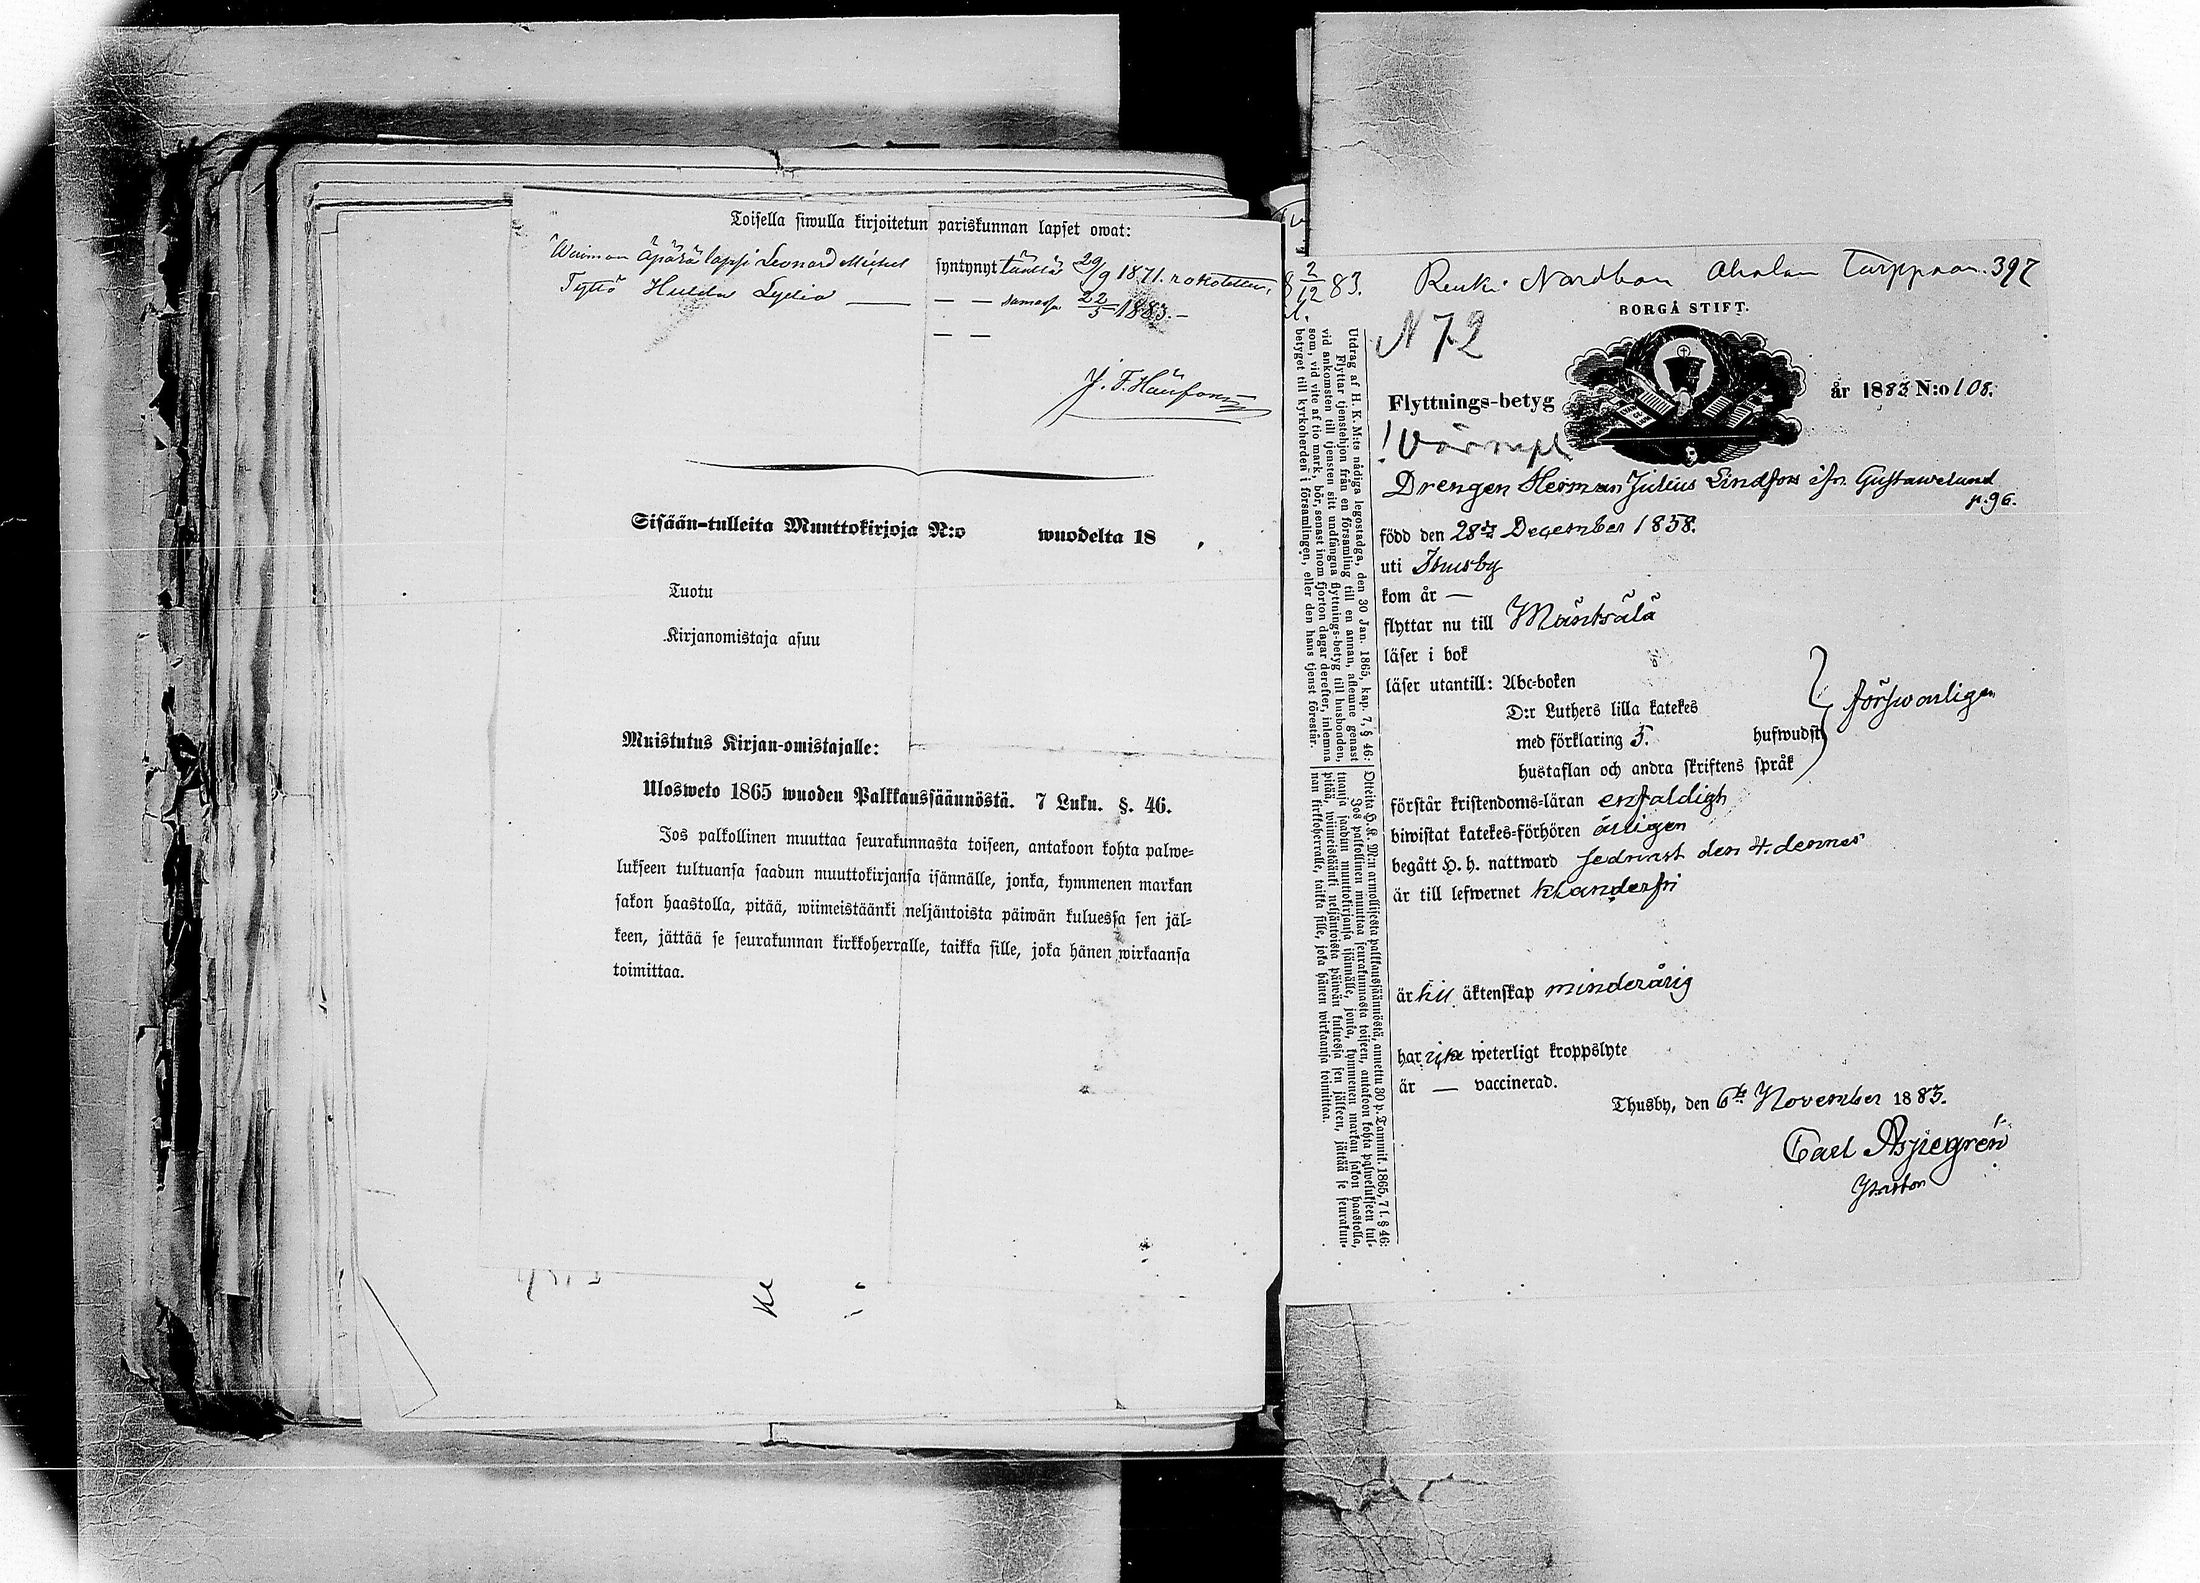 Toisella siwulla kirjoitetun pariskunnan lapset owat:
Waimon Äpärälapsi Leonard Michel syntynyt täällä 29/9 1871. rokotettu,
Tyttö Hulda Lydia — — — samassa 22/5 1883.–
— —
J. F.
Sisään-tulleita Muuttokirjoja N:o wuodelta 18
Tuotu
Kirjanomistaja asuu
Muistutus Kirjan-omistajalle:
Ulosweto 1865 wuoden Palkkaussäännöstä. 7 Luku. §. 46.
Jos palkollinen muuttaa seurakunnasta toiseen, antakoon kohta palwe-
lukseen tultuansa saadun muuttokirjansa isännälle, jonka, kymmenen markan
sakon haastolla, pitää, wiimeistäänki neljäntoista päiwän kuluessa sen jäl-
keen, jättää se seurakunnan kirkkoherralle, taikka sille, joka hänen wirkaansa
toimittaa.
2/12 83.
Renki Nordbom 397
N 72
BORGÅ STIFT.
Flyttnings-betyg år 1883 N:o 108.
Drengen Herman Julius Lindfors ifr. Gustawelund
p. 96.
född den 28de December 1858.
uti Thusby
kom år —
flyttar nu till Mäntsälä
läser i bok
läser utantill: Abc-boken
D:r Luthers lilla katekes
med förklaring 5. hufwudst
hustaflan och andra skriftens språk
förswarligen
förstår kristendoms-läran enfaldigt
biwistat katekes-förhören årligen
begått H. h. nattward sednast den 4. dennes
är till lefwernet klanderfri
är till äktenskap minderårig
har icke weterligt kroppslyte
är — vaccinerad.
Thusby, den 6te November 1883.
Carl
Utdrag af H. K. M:ts nådiga legostadga, den 30 Jan. 1865, kap. 7, § 46:
Flyttar tjenstehjon från en församling till en annan, aflemne genast
vid ankomsten till tjensten sitt undfångna flyttnings-betyg till husbonden,
som, vid vite af tio mark, bör, senast inom fjorton dagar derefter, inlemna
betyget till kyrkoherden i församlingen, eller den hans tjenst förestår.
Otteita H. K. M:n armollisesta palkkaussäännöstä, annettu 30 p. Tammik. 1865, 7 l. § 46:
Jos palkollinen muuttaa seurakunnasta toiseen, antakoon kohta palwelukseen tul-
tuansa saadun muuttokirjansa isännälle, jonka, kymmenen markan sakon haastolla,
pitää, wiimeistäänki neljäntoista päiwän kuluessa sen jälkeen, jättää se seurakun-
nan kirkkoherralle, taikka sille, joka hänen wirkaansa toimittaa.